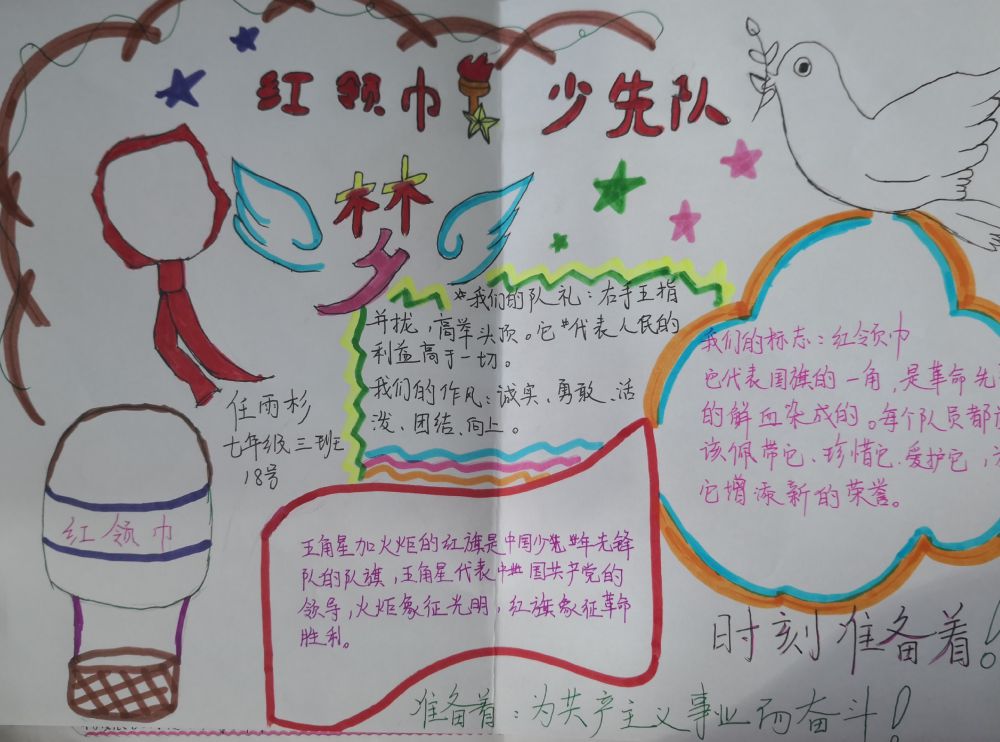 红领巾 少先队
梦
*我们的队礼：右手五指
并拢，高举头顶。它*代表人民的
利益高于一切。
我们的作风：诚实、勇敢、活
泼、团结、向上。
任雨杉
七年级三班
18号
红领巾
我们的标志：红领巾
它代表国旗的一角，是革命先
的解血染成的。每个队员都应
该佩带它、珍惜它、爱护它，
它增添新的荣誉。
五角星加火炬的红旗是中国少年先锋
队的队旗，五角星代表中国共产党的
领导，火炬象征光明，红旗象征革命
胜利。
时刻准备着！
准备着：为共产主义事业而奋斗！